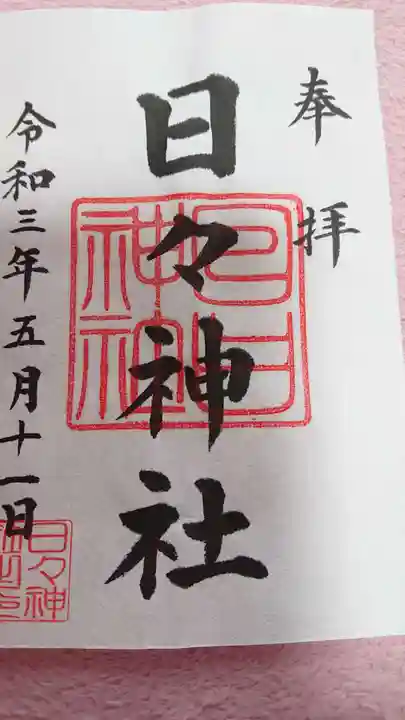 奉拝
日々神社
令和三年五月十一日
日日神社
日々神